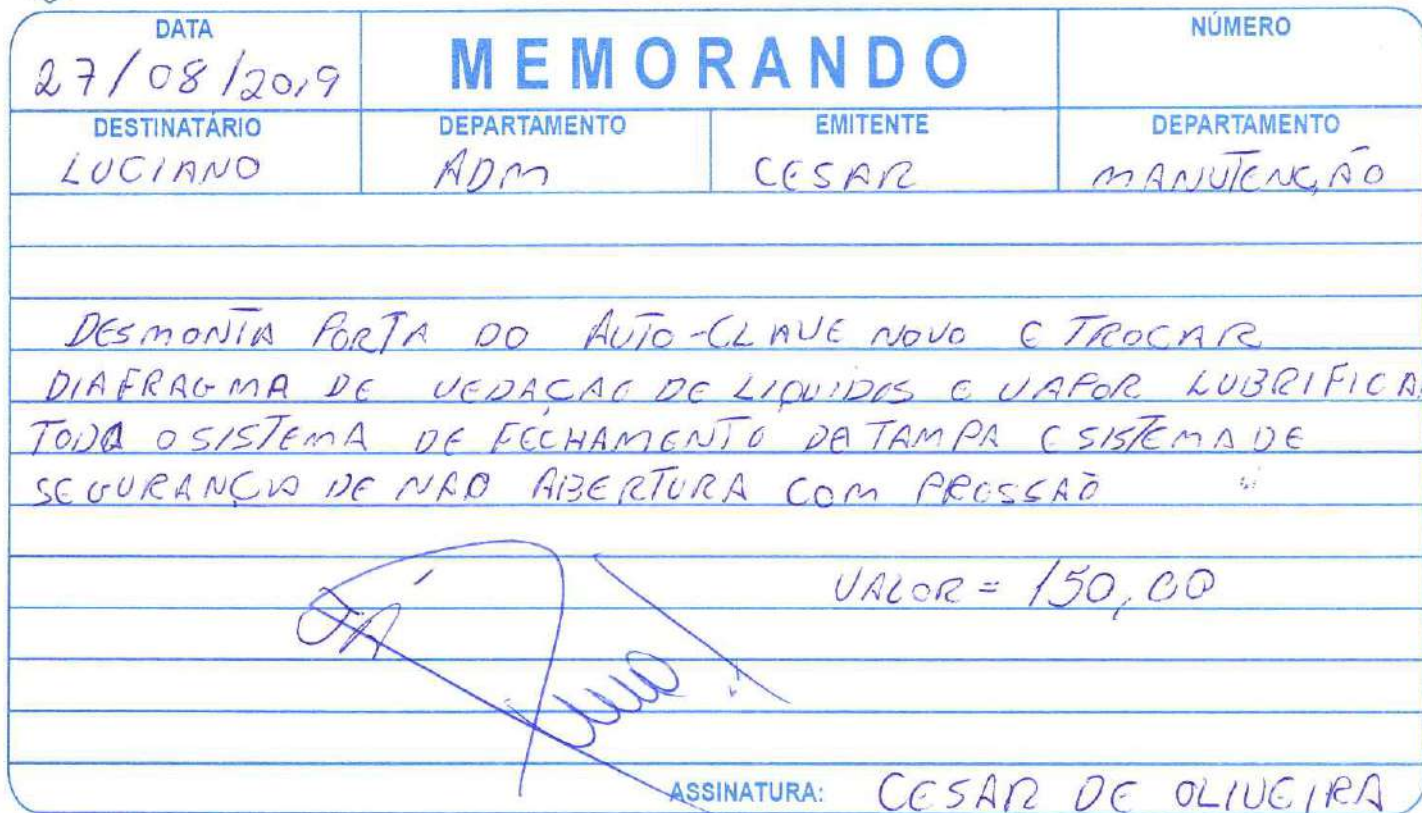 DATA
27/08/2019
MEMORANDO
NÚMERO
DESTINATÁRIO
LUCIANO
DEPARTAMENTO
ADM
EMITENTE
CESAR
DEPARTAMENTO
MANUTENÇÃO
DESMONTA PORTA DO AUTO-CLAVE NOVO E TROCAR
DIAFRAGMA DE VEDAÇAO DE LIQUIDOS E VAPOR LUBRIFICA
TODO O SISTEMA DE FECHAMENTO DA TAMPA E SISTEMA DE
SEGURANÇA DE NAO ABERTURA COM PRESSÃO
VALOR = 150,00
ASSINATURA: CESAR DE OLIVEIRA